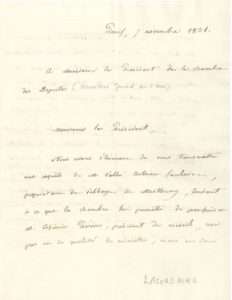 Paris, 7 novembre 1831.
A Monsieur le Président de la chambre
des Députés
Monsieur le Président,
Nous avons l'honneur de vous transmettre
une requête de M. l'abbé Antoine
propriétaire de l'abbaye de Melleray, tendant
à ce que la chambre lui permette de poursuivre
M. Casimir Périer, président du conseil, non
pas en sa qualité de ministre, mais en sa
LACORDAIRE